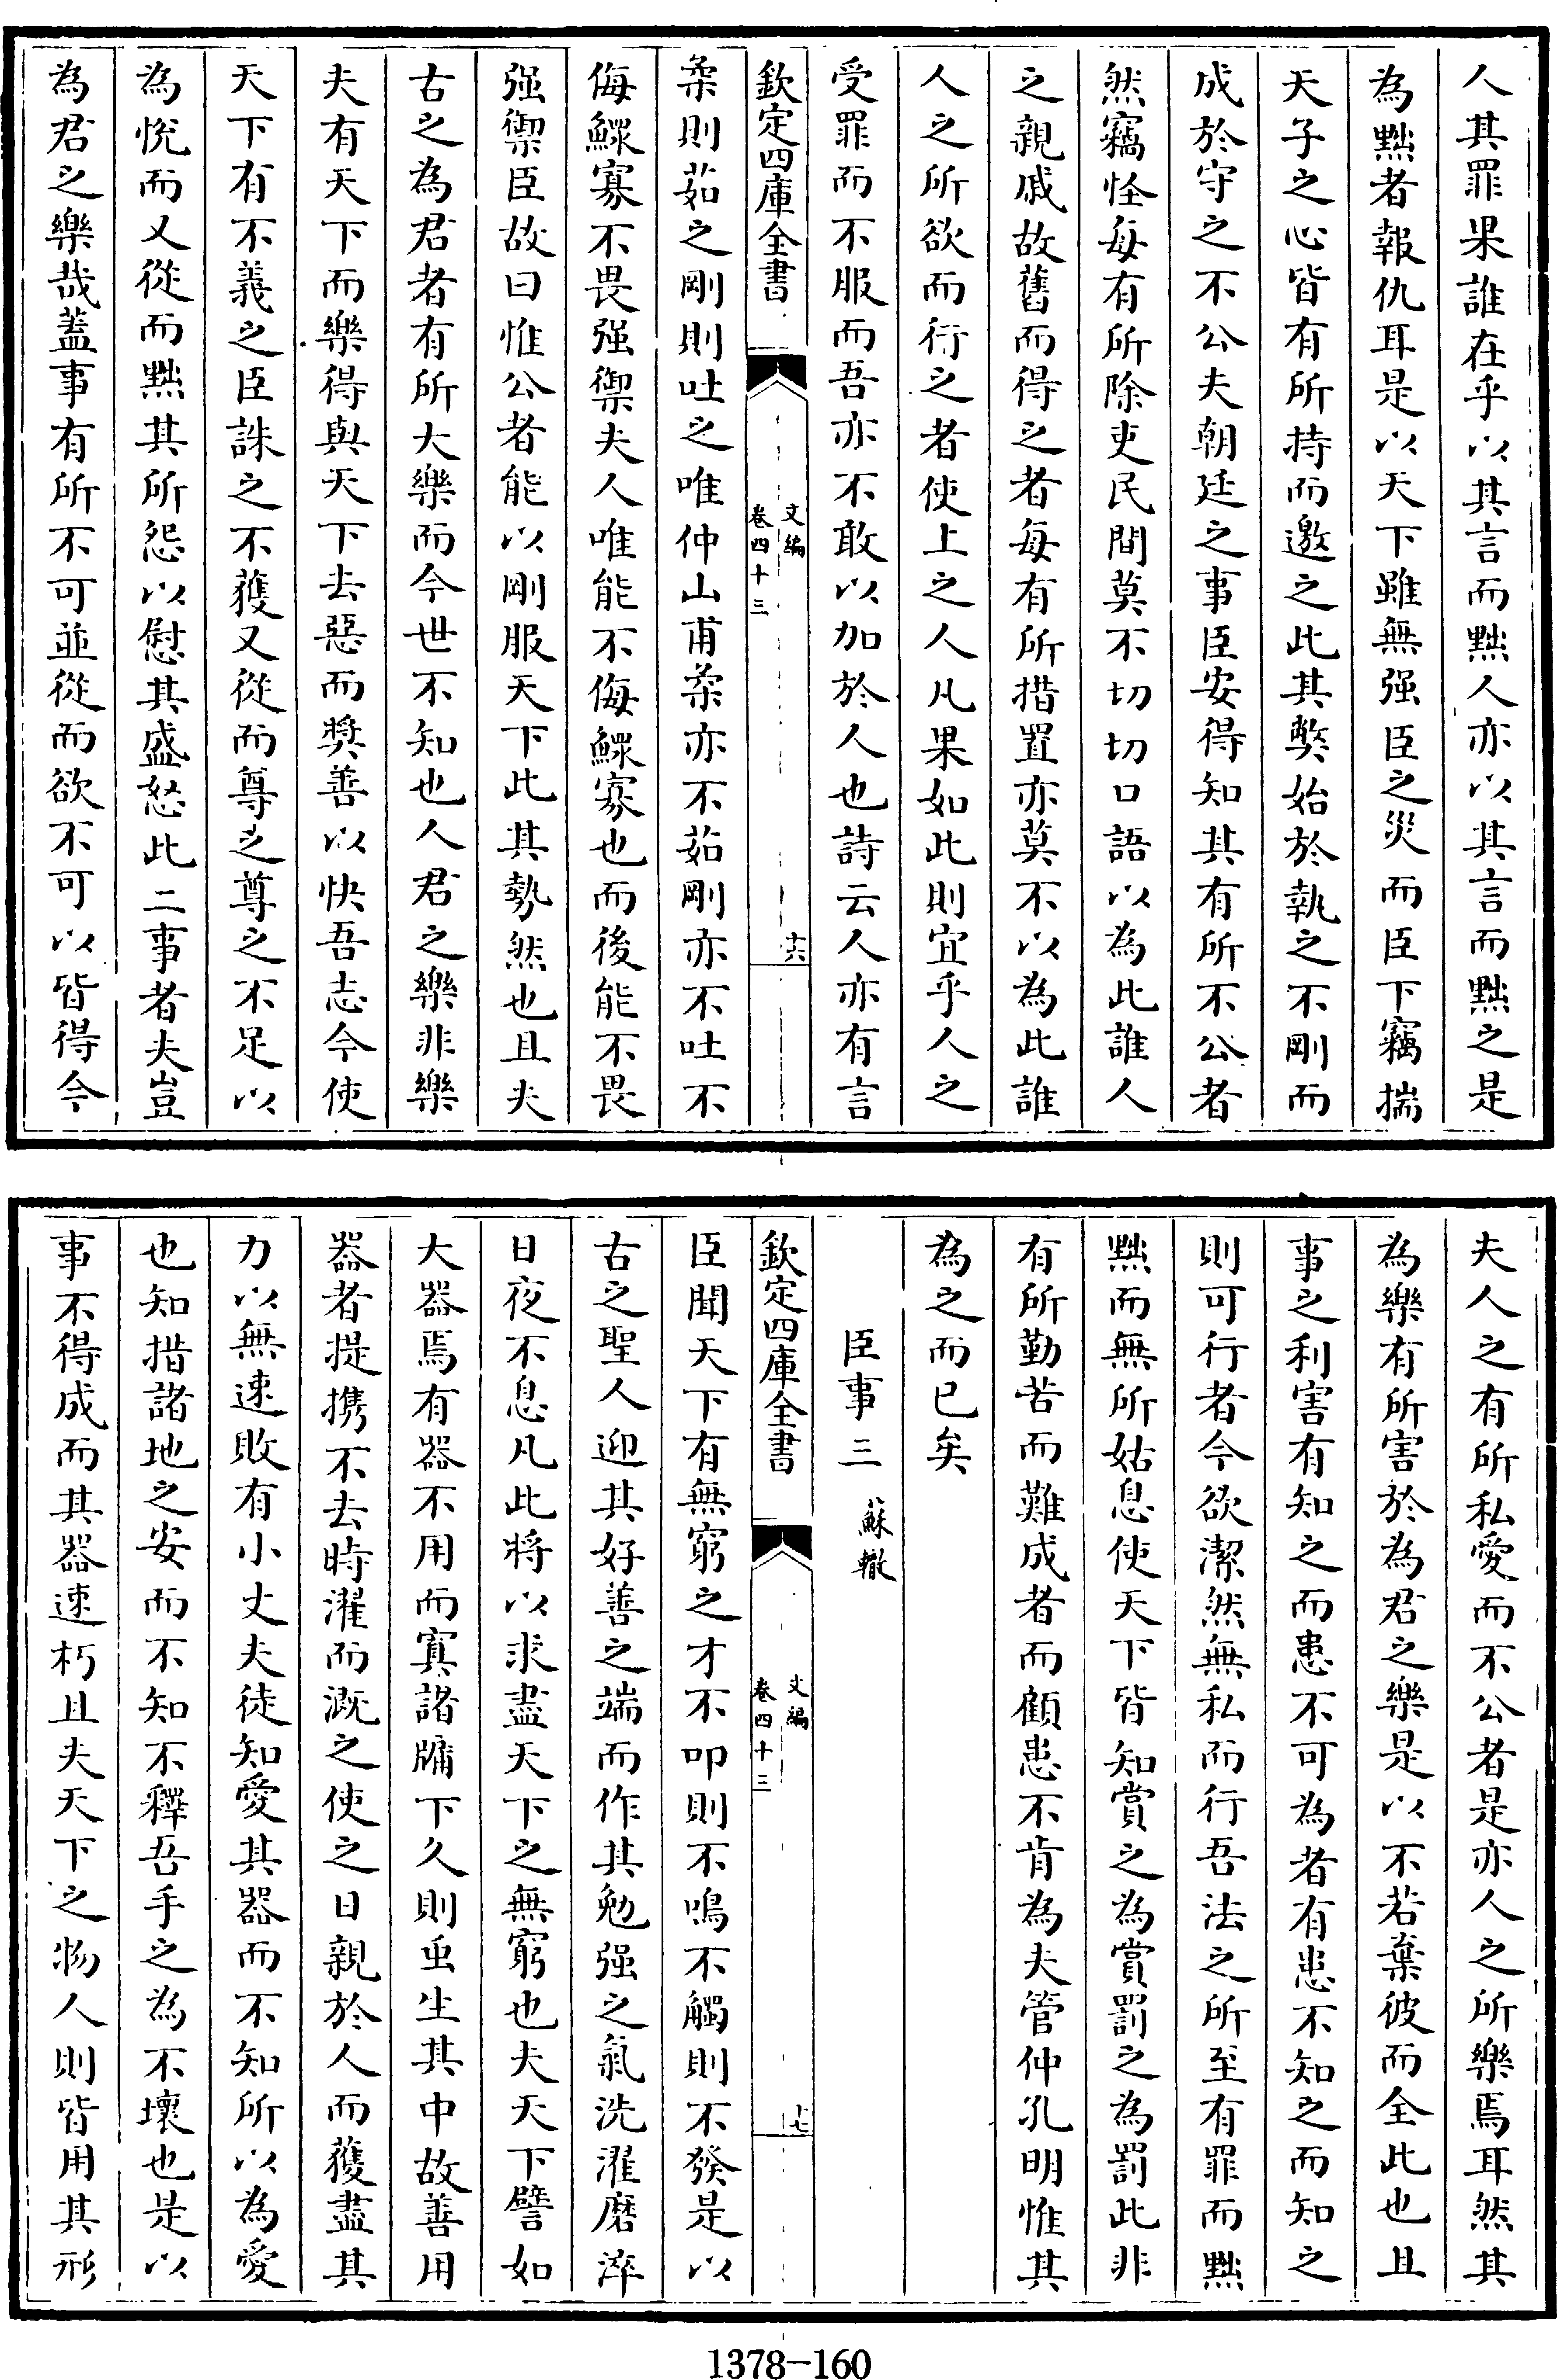 人其罪果誰在乎以其言而黜人亦以其言而黜之是
為黜者報仇耳是以天下雖無强臣之災而臣下竊揣
天子之心皆有所持而邀之此其弊始於執之不剛而
成於守之不公夫朝廷之事臣安得知其有所不公者
然竊怪每有所除吏民間莫不切切口語以為此誰人
之親戚故舊而得之者每有所措置亦莫不以為此誰
人之所欲而行之者使上之人凡果如此則宜乎人之
受罪而不服而吾亦不敢以加於人也詩云人亦有言
欽定四庫全書
文編
卷四十三
十六
柔則茹之剛則吐之唯仲山甫柔亦不茹剛亦不吐不
侮鰥寡不畏强禦夫人唯能不侮鰥寡也而後能不畏
强禦臣故曰惟公者能以剛服天下此其勢然也且夫
古之為君者有所大樂而今世不知也人君之樂非樂
夫有天下而樂得與天下去惡而奬善以快吾志今使
天下有不義之臣誅之不獲又從而尊之尊之不足以
為悅而又從而黜其所怨以慰其盛怒此二事者夫豈
為君之樂哉蓋事有所不可並從而欲不可以皆得今
夫人之有所私愛而不公者是亦人之所樂焉耳然其
為樂有所害於為君之樂是以不若棄彼而全此也且
事之利害有知之而患不可為者有患不知之而知之
則可行者今欲潔然無私而行吾法之所至有罪而黜
黜而無所姑息使天下皆知賞之為賞罰之為罰此非
有所勤苦而難成者而顧患不肯為夫管仲孔明惟其
為之而已矣
臣事三 蘇轍
欽定四庫全書
文編
卷四十三
十七
臣聞天下有無窮之才不叩則不鳴不觸則不發是以
古之聖人迎其好善之端而作其勉强之氣洗濯磨淬
日夜不息凡此將以求盡天下之無窮也夫天下譬如
大器焉有器不用而寘諸牖下久則虫生其中故善用
器者提携不去時濯而溉之使之日親於人而獲盡其
力以無速敗有小丈夫徒知愛其器而不知所以為愛
也知措諸地之安而不知不釋吾手之為不壞也是以
事不得成而其器速朽且夫天下之物人則皆用其形
1378-160